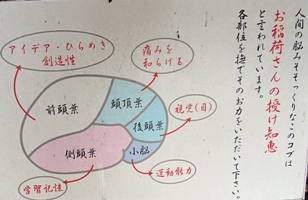 人間の脳みそそっくりなこのコブは
お稲荷さんの授け知恵
と言われています。
各部位を撫でそのお力をいただいて下さい。
アイデア・ひらめき
創造性
痛みを
和らげる
前頭葉
頭頂葉
後頭葉
視覚(目)
側頭葉
小脳
学習記憶
運動能力